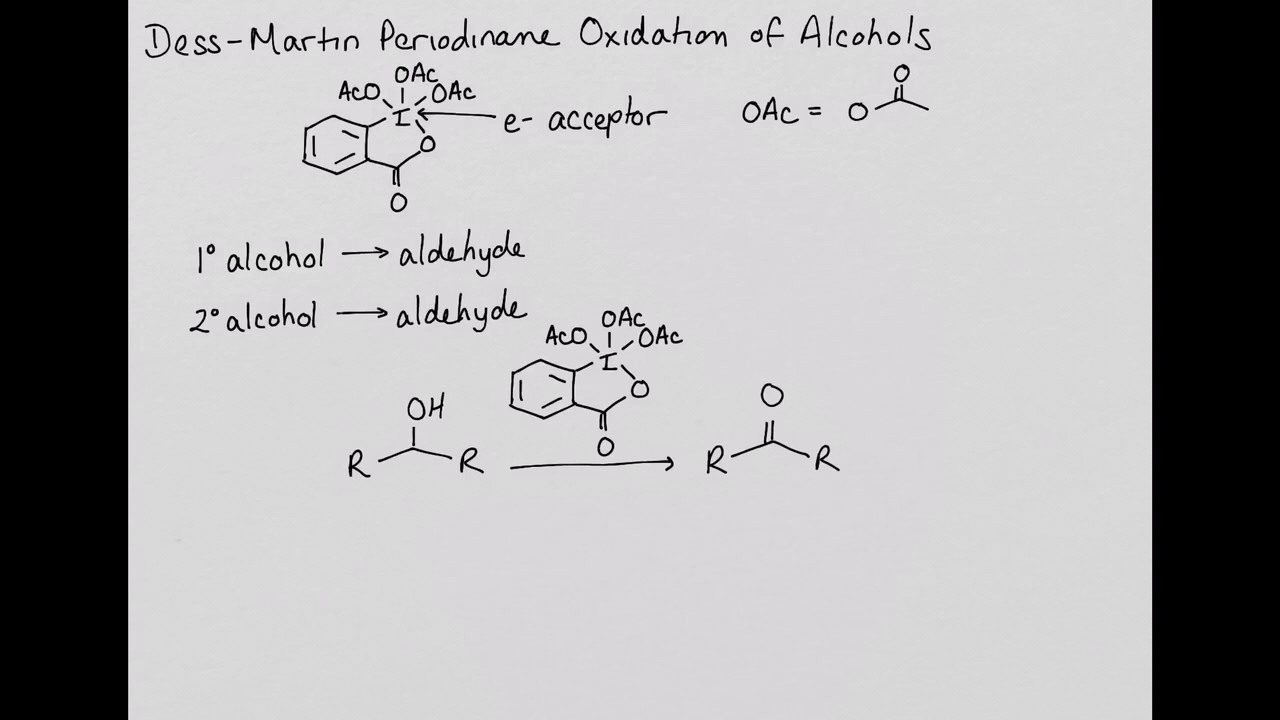 Dess-Martin Periodinane Oxidation of Alcohols
OAc
AcO OAc
I e- acceptor OAc = O O
O
O
1° alcohol → aldehyde
2° alcohol → aldehyde
OAc
AcO OAc
I
O
O
OH O
R R R R